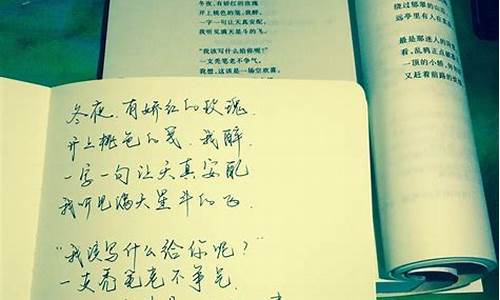 冬夜,有娇红的玫瑰
开上桃色的笺,我醉,
一字一句让天真安配,
我听见满天星斗的飞。
“我该写什么给你呢?”
一支秃笔老不争气。
我想,这该是一场空欢喜,
绕过郁翠的山
远亭里有人在
最是那迷人的
看,乱鸦正点破
一顶的小轿,
又赶着前路的
冬夜,有娇红的玫瑰
开上桃色的笺,我醉,
一字一句让天真安配
我听见满天星斗的飞.
“我该写什么给你呢?”
一支秃笔老不争气.